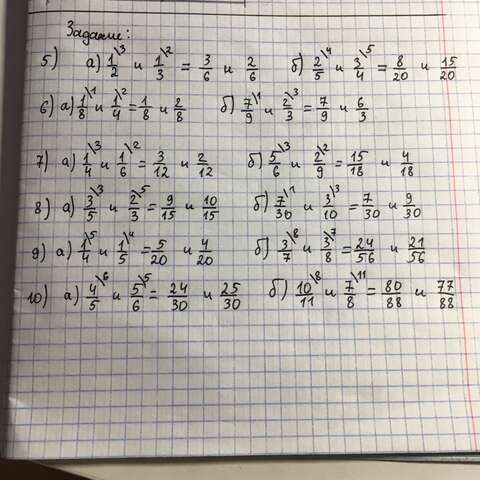 Задание:
5) а) 1/2 \3 и 1/3 \2 = 3/6 и 2/6 б) 2/5 \4 и 3/4 \5 = 8/20 и 15/20
6) а) 1/8 \1 и 1/4 \2 = 1/8 и 2/8 б) 7/9 \1 и 2/3 \3 = 7/9 и 6/3
7) а) 1/4 \3 и 1/6 \2 = 3/12 и 2/12 б) 5/6 \3 и 2/9 \2 = 15/18 и 4/18
8) а) 3/5 \3 и 2/3 \5 = 9/15 и 10/15 б) 7/30 \1 и 3/10 \3 = 7/30 и 9/30
9) а) 1/4 \5 и 1/5 \4 = 5/20 и 4/20 б) 3/7 \8 и 3/8 \7 = 24/56 и 21/56
10) а) 4/5 \6 и 5/6 \5 = 24/30 и 25/30 б) 10/11 \8 и 7/8 \11 = 80/88 и 77/88